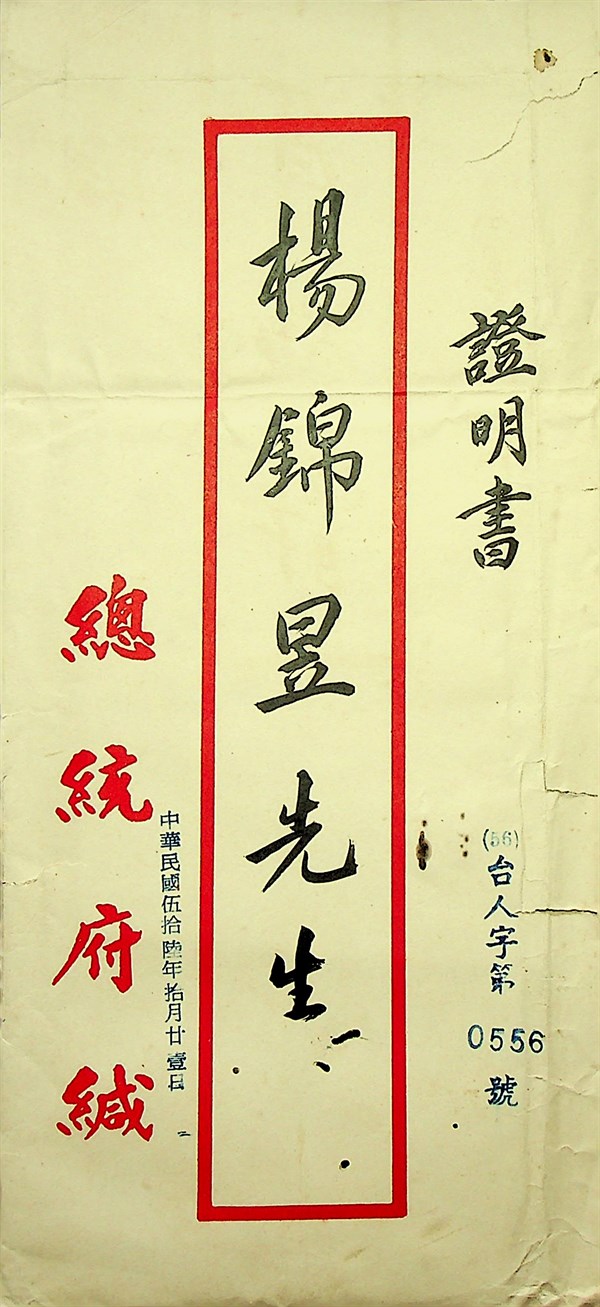 證明書
(56)台人字第0556號
楊錦昱先生
中華民國伍拾陸年拾月廿壹日
總統府緘